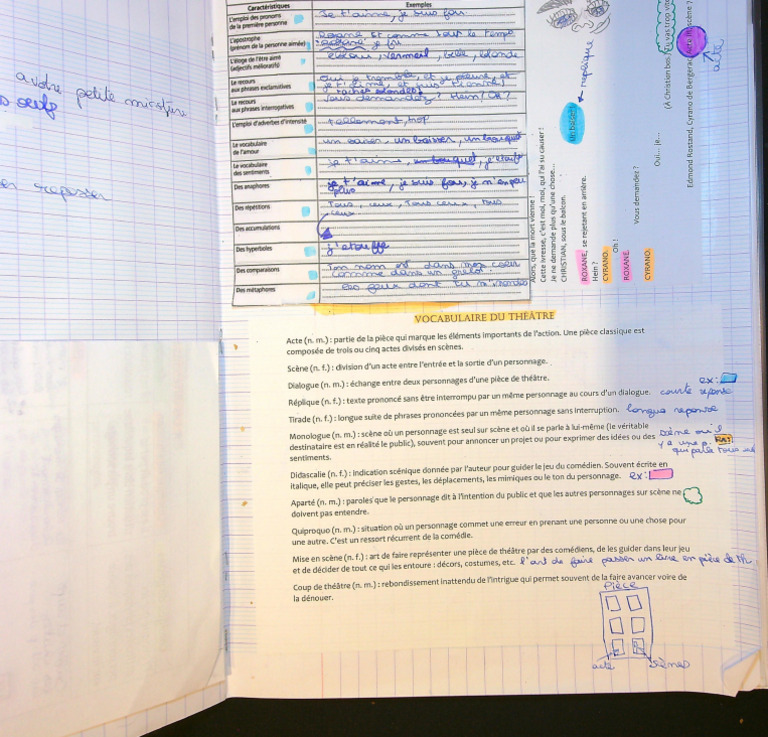 a votre petite
Caractéristiques
Exemples
L'emploi des pronoms
de la première personne
Je t'aime, je suis fou
L'apostrophe
(prénom de la personne aimée)
L'éloge de l'être aimé
(adjectifs mélioratifs)
vermeil, belle, blonde
Le recours
aux phrases exclamatives
Le recours
aux phrases interrogatives
Vous demandez? Hein? Oh!
L'emploi d'adverbes d'intensité
tellement, trop
Le vocabulaire
de l'amour
un baiser, un baisser, un bouquet
Le vocabulaire
des sentiments
Je t'aime, bouquet,
Des anaphores
je t'aime, je suis fou, je n'en peu
plus
Des répétitions
Tous, ceux, Tous ceux, tous
ceux
Des accumulations
Des hyperboles
j'étouffe
Des comparaisons
Ton nom est dans mon coeur
comme dans un grelot.
Des métaphores
Alors, que la mort vienne !
Cette ivresse, c'est moi, moi, qui l'ai su causer !
Je ne demande plus qu'une chose...
CHRISTIAN, sous le balcon.
Un baiser !
réplique
ROXANE, se rejetant en arrière.
Hein ?
CYRANO.
Oh !
ROXANE
Vous demandez ?
CYRANO.
Oui... je...
(À Christian bas.) Tu vas trop vite
Edmond Rostand, Cyrano de Bergerac, Acte III, scène 7
acte
VOCABULAIRE DU THÉÂTRE
Acte (n. m.) : partie de la pièce qui marque les éléments importants de l'action. Une pièce classique est
composée de trois ou cinq actes divisés en scènes.
Scène (n. f.) : division d'un acte entre l'entrée et la sortie d'un personnage.
Dialogue (n. m.) : échange entre deux personnages d'une pièce de théâtre.
ex:
Réplique (n. f.) : texte prononcé sans être interrompu par un même personnage au cours d'un dialogue. courte réponse
Tirade (n. f.) : longue suite de phrases prononcées par un même personnage sans interruption. longue reponse
Monologue (n. m.) : scène où un personnage est seul sur scène et où il se parle à lui-même (le véritable
destinataire est en réalité le public), souvent pour annoncer un projet ou pour exprimer des idées ou des
sentiments.
scène ou il
y a une p.
qui parle tous seul
Didascalie (n. f.) : indication scénique donnée par l'auteur pour guider le jeu du comédien. Souvent écrite en
italique, elle peut préciser les gestes, les déplacements, les mimiques ou le ton du personnage. ex:
Aparté (n. m.) : paroles que le personnage dit à l'intention du public et que les autres personnages sur scène ne
doivent pas entendre.
Quiproquo (n. m.) : situation où un personnage commet une erreur en prenant une personne ou une chose pour
une autre. C'est un ressort récurrent de la comédie.
Mise en scène (n. f.) : art de faire représenter une pièce de théâtre par des comédiens, de les guider dans leur jeu
et de décider de tout ce qui les entoure : décors, costumes, etc. l'art de faire passer un livre en pièce de th.
Coup de théâtre (n. m.) : rebondissement inattendu de l'intrigue qui permet souvent de la faire avancer voire de
la dénouer.
Pièce
acte
scènes